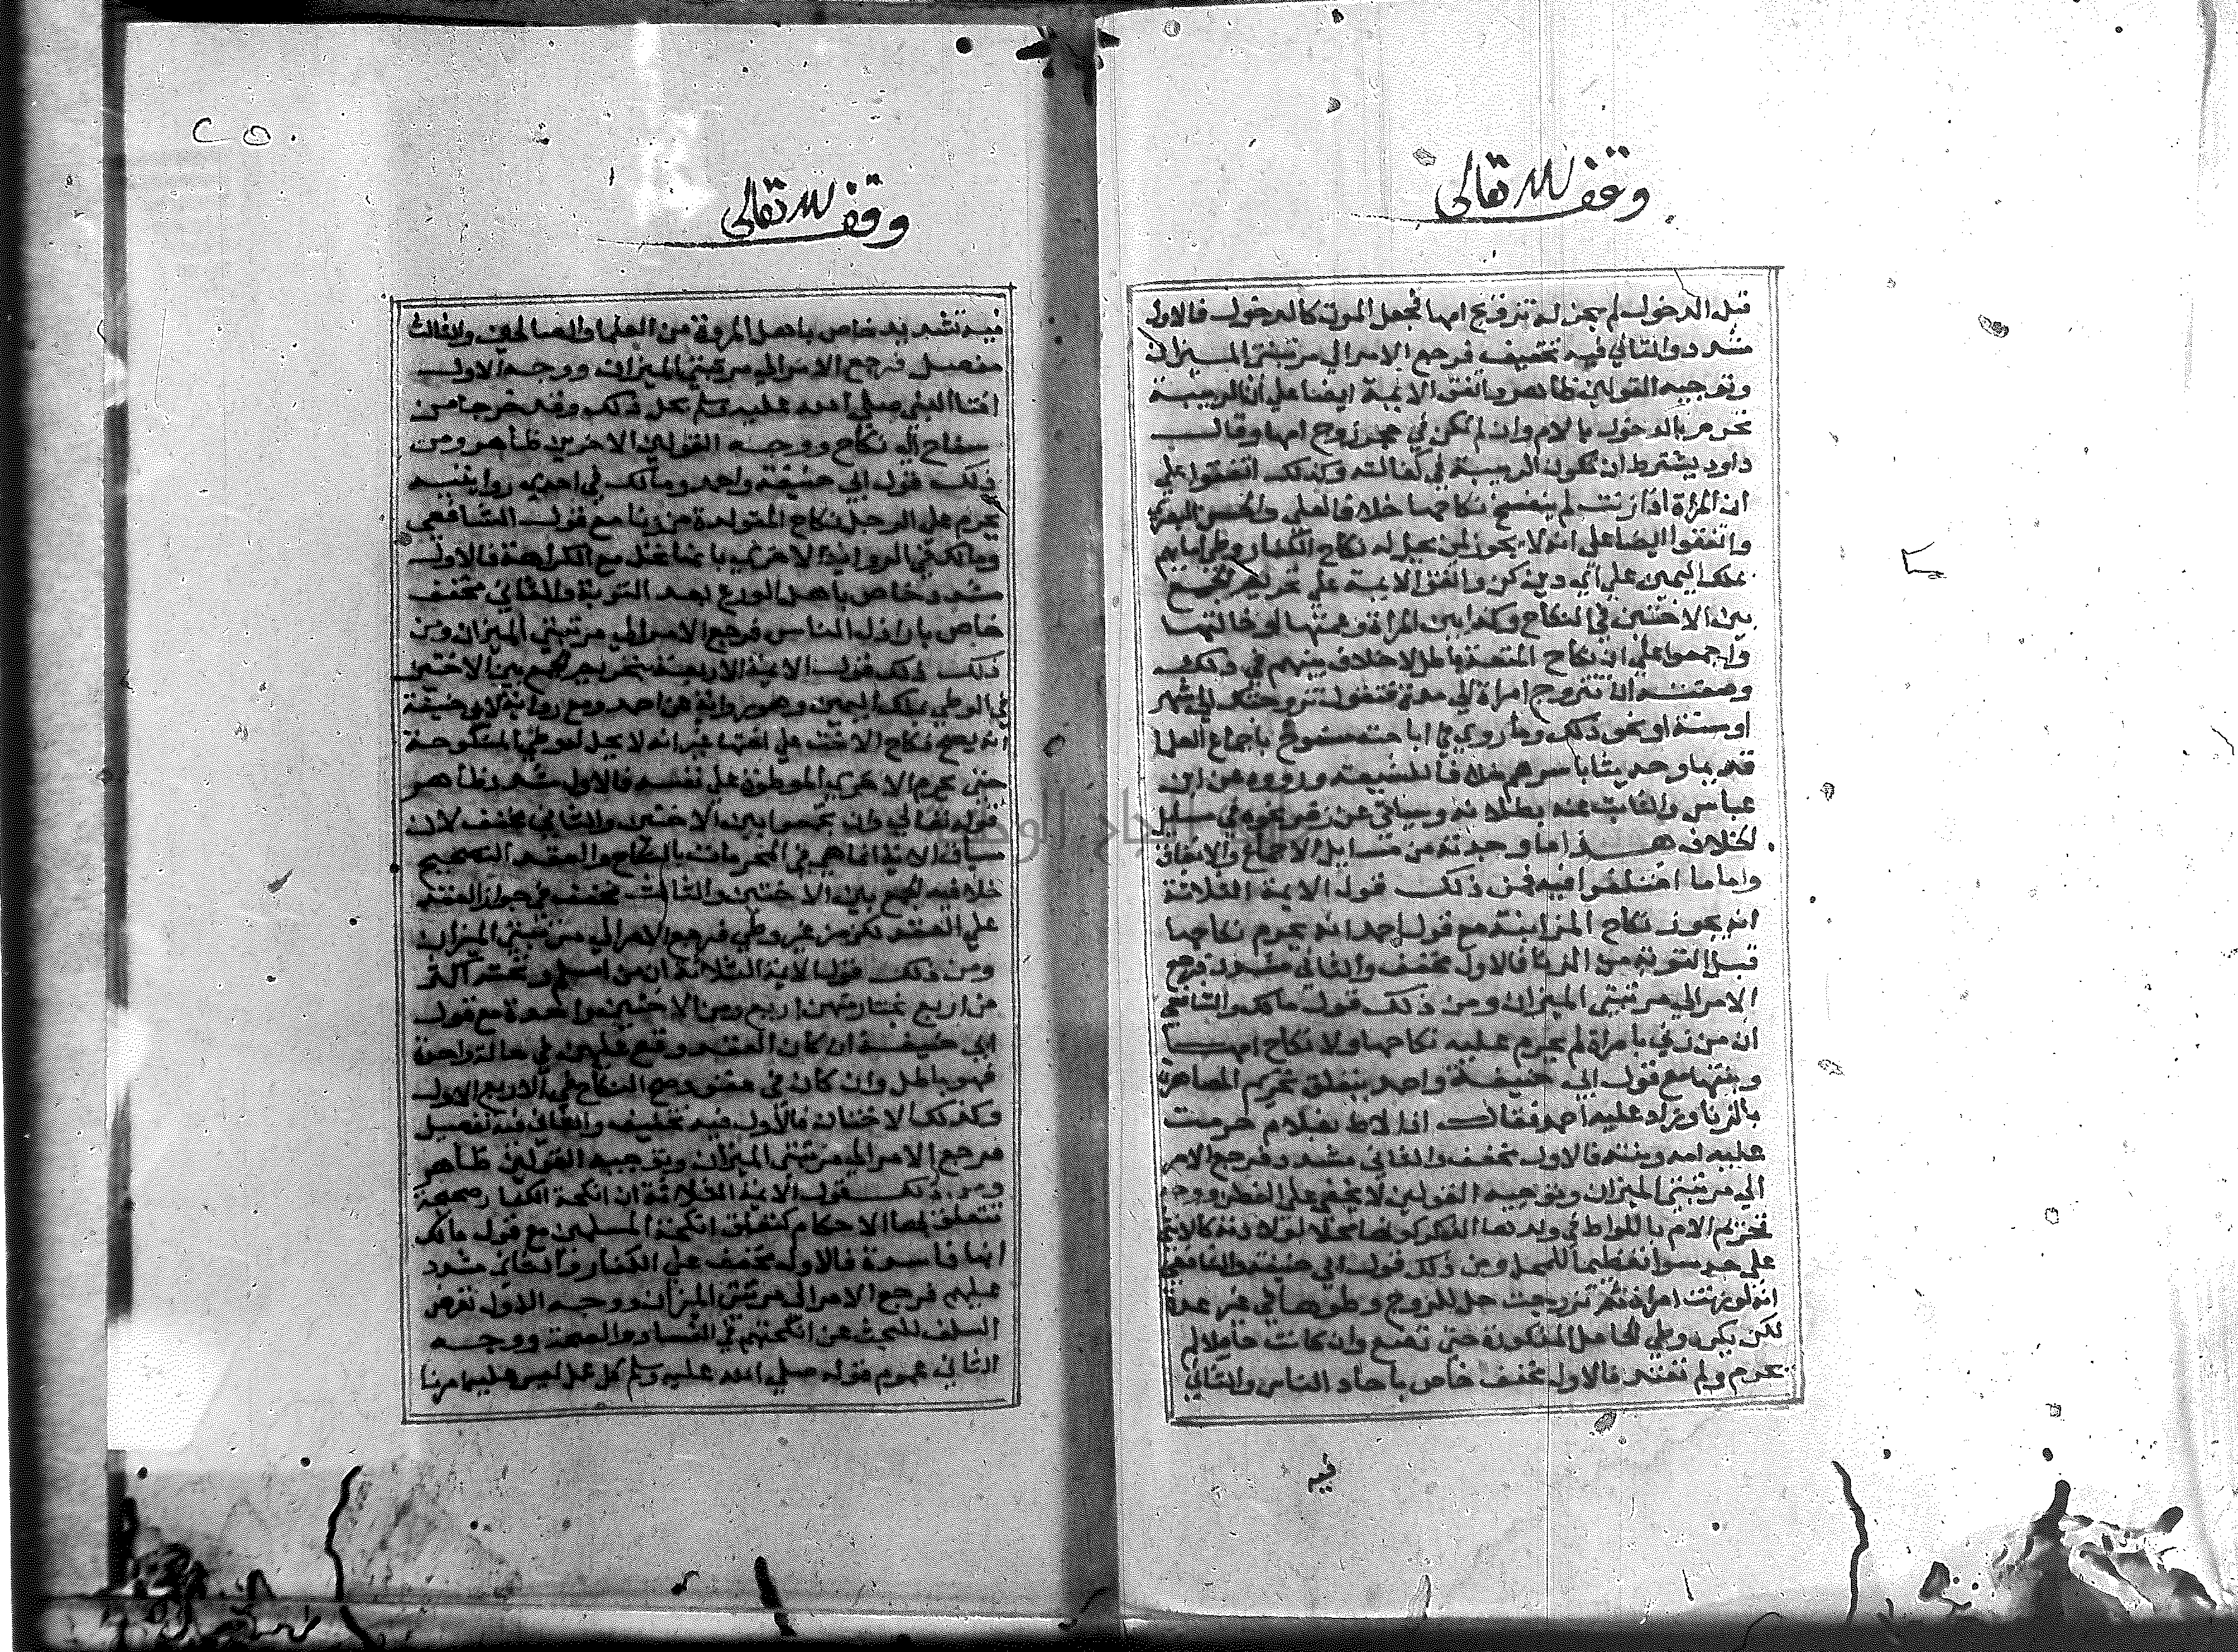 وقف لله تعالى
قبل الدخول لم يجز له تزويج امها فجعل الموت كالدخول فالاول
مشدد والثاني فيه تخفيف فرجع الامر الي مرتبتي الميزان
وتوجيه القولين ظاهر واتفق الايمة ايضا علي ان الربيبة
تحرم بالدخول بالام وان لم تكن في حجر زوج امها وقال
داود يشترط ان تكون الربيبة في كفالته وكذلك اتفقوا علي
ان المراة اذا زنت لم ينفسخ نكاحها خلافا لعلي والحسن البصري
واتفقوا ايضا علي انه لا يجوز لمن يحل له نكاح الكفار وطي امايهم
بملك اليمين علي اي دين كن واتفق الايمة علي تحريم الجمع
بين الاختين في النكاح وكذا بين المراة وعمتها او خالتها
واجمعوا علي ان نكاح المتعة باطل لا خلاف بينهم في ذلك
وصفته ان تتزوج امراة الي مدة فتقول تزوجتك الي شهر
او سنة او نحو ذلك وما روي في اباحته منسوخ باجماع العلما
قديما وحديثا باسرهم خلافا للشيعة ورووه عن ابن
عباس والثابت عنه بطلانه وسياتي عن زفر نحوه في مسايل
الخلاف هذا ما وجدته من مسايل الاجماع والاتفاق
واما ما اختلفوا فيه فمن ذلك قول الايمة الثلاثة
انه يجوز نكاح الزانية مع قول احمد انه يحرم نكاحها
قبل التوبة من الزنا فالاول مخفف والثاني مشدد فرجع
الامر الي مرتبتي الميزان ومن ذلك قول مالك والشافعي
ان من زني بامراة لم يحرم عليه نكاحها ولا نكاح امها
وبنتها مع قول ابي حنيفة واحمد بتعلق تحريم المصاهرة
بالزنا وزاد عليه احمد فقال اذا لاط بغلام حرمت
عليه امه وبنته فالاول مخفف والثاني مشدد فرجع الامر
الي مرتبتي الميزان وتوجيه القولين لا يخفي علي الفطن ووجه
تحريم الام باللواط في ولدها الذكر كونها محلا لولادته كالانثي
علي حد سوا تغليظا للمحل ومن ذلك قول ابي حنيفة والشافعي
انه لو زنت امراة ثم تزوجت حل للزوج وطوها في غير عدة
لكن يكره وطي الحامل المذكورة حتي تضع وان كانت حاملا لم
يحرم ولم تعتد فالاول مخفف خاص باحاد الناس والثاني
فيه
٢٥٠
وقف لله تعالى
فيه تشديد خاص باهل المروة من العلما والصالحين والثالث
مفصل فرجع الامر الي مرتبتي الميزان ووجه الاول
افتا النبي صلي الله عليه وسلم بحل ذلك وقد خرجا من
سفاح الي نكاح ووجه القولين الاخرين ظاهر ومن
ذلك قول ابي حنيفة واحمد ومالك في احدي روايتيه
يحرم علي الرجل نكاح المتولدة من زنا مع قول الشافعي
ومالك في الرواية الاخري بانها تحل مع الكراهة فالاول
مشدد خاص باهل الورع بعد التوبة والثاني مخفف
خاص باراذل الناس فرجع الامر الي مرتبتي الميزان ومن
ذلك ذلك قول الايمة الاربعة بتحريم الجمع بين الاختين
في الوطي بملك اليمين وهو رواية عن احمد ومع رواية لابي حنيفة
انه يصح نكاح الاخت علي اختها غير انه لا يحل له وطي المنكوحة
حتي يحرم الاخري الموطوة علي نفسه فالاول مشدد ظاهر
قوله تعالي وان تجمعوا بين الاختين والثاني مخفف لان
سياق الاية انما هي في المحرمات بالنكاح والعقد الصحيح
خلافه الجمع بين الاختين والثالث مخفف في جواز العقد
علي العقد لكن من غير وطي فرجع الامر الي مرتبتي الميزان
ومن ذلك قول الايمة الثلاثة ان من اسلم وتحته اكثر
من اربع يختار منهن اربع ومن الاختين واحدة مع قول
ابي حنيفة ان كان العقد وقع عليهن في حالة واحدة
فهو باطل وان كان في عقود صح النكاح في الاربع الاول
وكذلك الاختان فالاول فيه تخفيف والثاني فيه تفصيل
فرجع الامر الي مرتبتي الميزان وتوجيه القولين ظاهر
ومن ذلك قول الايمة الثلاثة ان انكحة الكفار صحيحة
تتعلق بها الاحكام كتعلق انكحة المسلمين مع قول مالك
انها فاسدة فالاول مخفف علي الكفار والثاني مشدد
عليهم فرجع الامر الي مرتبتي الميزان ووجه الاول تعرض
السلف للبحث عن انكحتهم في الفساد والصحة ووجه
الثاني عموم قوله صلي الله عليه وسلم كل عمل ليس عليه امرنا